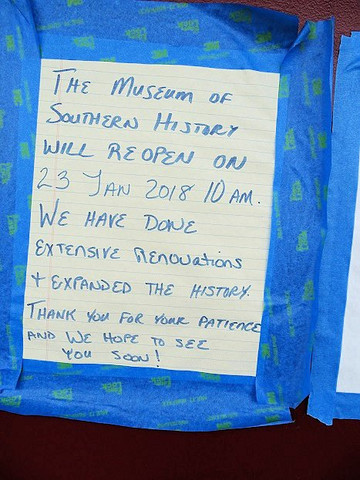 THE MUSEUM OF
SOUTHERN HISTORY
WILL REOPEN ON
23 JAN 2018 10 AM.
WE HAVE DONE
EXTENSIVE RENOVATIONS
+ EXPANDED THE HISTORY.
THANK YOU FOR YOUR PATIENCE
AND WE HOPE TO SEE
YOU SOON!